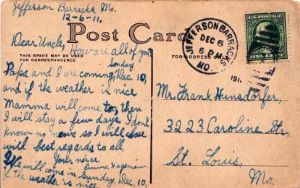 Jefferson Barracks, Mo.
12-6-11.
Post Card
JEFFERSON BARRACKS
DEC 6
6 PM
MO.
191
Dear Uncle,
How are all of you
THIS SPACE MAY BE USED
FOR ADDRESS
Sunday
Papa and I are coming Dec, 10,
and if the weather is nice
Mamma will come to, then
I will stay a few days I don't
know my so I will close
with best regards to all
Your niece
We will come in Sunday Dec, 10,
if the weather is nice
Mr. Frank
3223 Caroline Str.
St. Louis,
Mo.